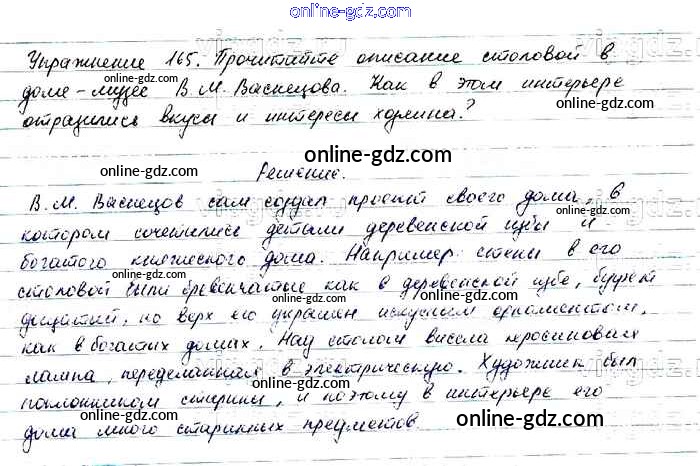 online-gdz.com
Упражнение 165. Прочитайте описание столовой в
online-gdz.com
доме-музее В. М. Васнецова. Как в этом интерьере
online-gdz.com
отразились вкусы и интересы хозяина?
online-gdz.com
Решение.
online-gdz.com
В. М. Васнецов сам создал проект своего дома, в
котором сочетались детали деревенской избы и
online-gdz.com
богатого княжеского дома. Например: стены в его
online-gdz.com
столовой были бревенчатые как в деревенской избе, буфет
online-gdz.com
дощатый, но верх его украшен искусным орнаментом,
как в богатых домах. Над столом висела керосиновая
online-gdz.com
лампа, переделанная в электрическую. Художник был
online-gdz.com
поклонником старины, и поэтому в интерьере его
online-gdz.com
дома много старинных предметов
online-gdz.com